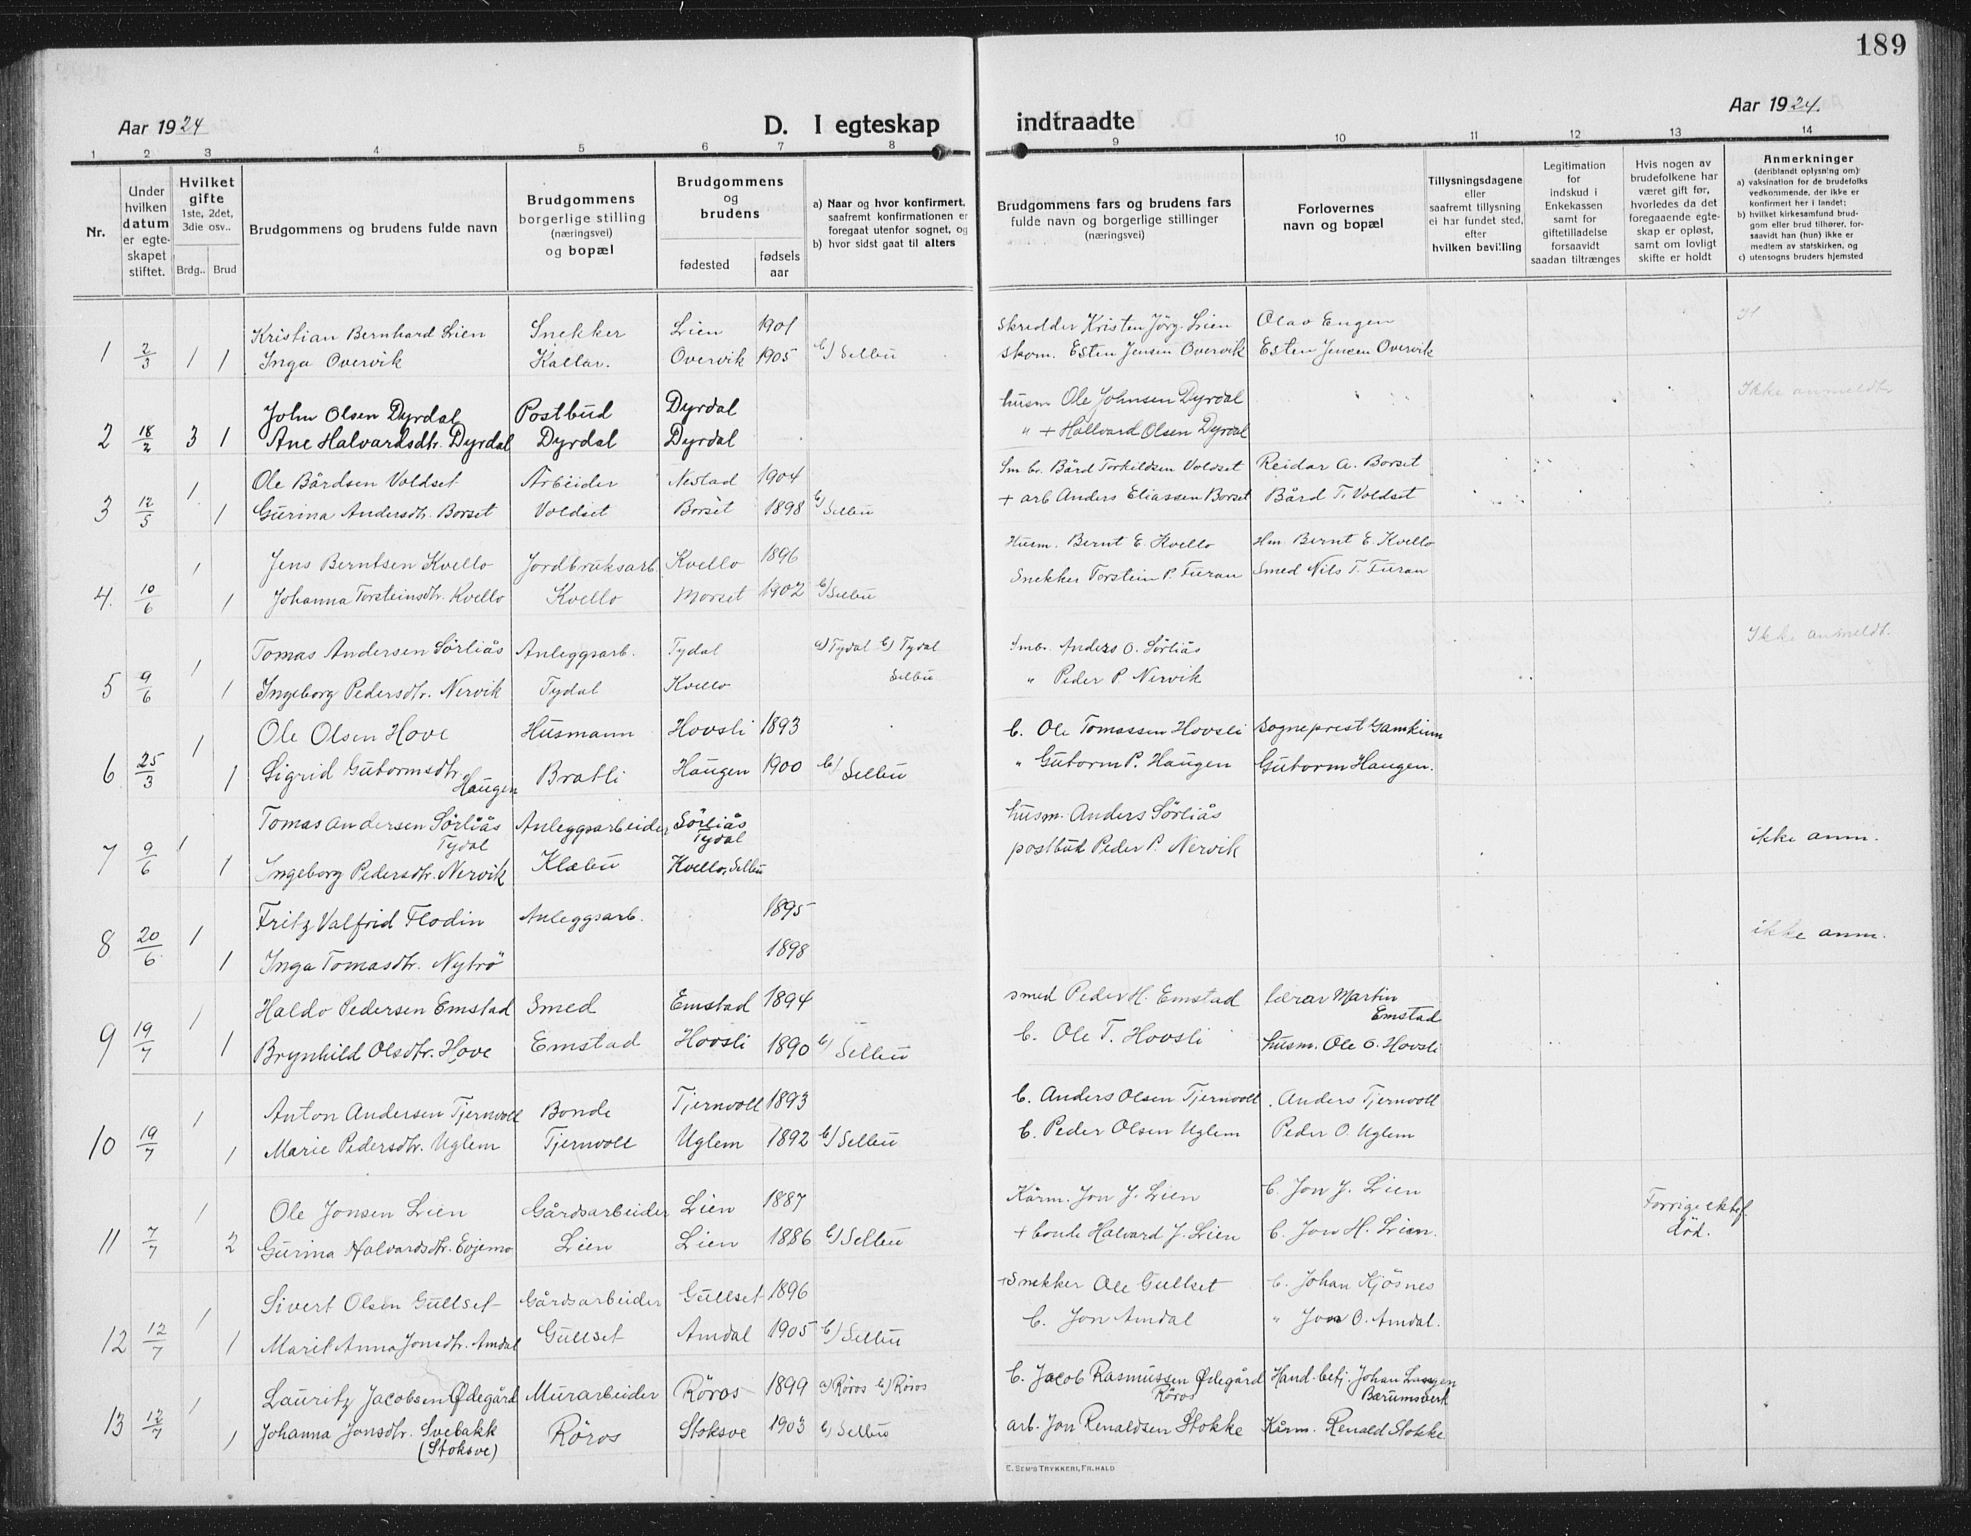 189
Aar 1924
D. I egteskap indtraadte
Aar 1924.
1 2 3 4 5 6 7 8 9 10 11 12 13 14
Nr.
Under hvilken datum er egteskapet stiftet.
Hvilket gifte 1ste, 2det, 3die osv..
Brdg.. Brud
Brudgommens og brudens fulde navn
Brudgommens borgerlige stilling (næringsvei) og bopæl
Brudgommens og brudens
fødested
fødsels aar
a) Naar og hvor konfirmert, saafremt konfirmationen er foregaat utenfor sognet, og
b) hvor sidst gaat til alters
Brudgommens fars og brudens fars fulde navn og borgerlige stillinger (næringsvei)
Forlovernes navn og bopæl
Tillysningsdagene eller saafremt tillysning ei har fundet sted, efter hvilken bevilling
Legitimation for indskud i Enkekassen samt for giftetilladelse forsaavidt saadan tiltrænges
Hvis nogen av brudefolkene har været gift før, hvorledes da det foregaaende egteskap er opløst, samt om lovligt skifte er holdt
Anmerkninger (deriblandt oplysning om):
a) vaksination for de brudefolks vedkommende, der ikke er konfirmert her i landet;
b) hvilket kirkesamfund brudgom eller brud tilhører, forsaavidt han (hun) ikke er medlem av statskirken, og
c) utensogns bruders hjemsted
Kristian Bernhard Lien Snekker Lien 1901 Skredder Kristen Jörg. Lien Olav Engen
1 2/3 1 1 Inga Overvik Kallar. Overvik 1905 b) Selbu skom. Esten Jensen Overvik Esten Jensen Overvik
John Olsen Dyrdal Postbud Dyrdal husm Ole Johnsen Dyrdal Ikke anmeldt
2 18/2 3 1 Ane Halvardsdtr. Dyrdal Dyrdal Dyrdal " + Hallvard Olsen Dyrdal
1 Ole Bårdsen Voldset Arbeider Nestad 1904 Sm br. Bård Torkildsen Voldset Reidar A. Borset
3 12/5 1 Gurina Andersdtr. Borset Voldset Borset 1898 b) Selbu + arb Anders Eliassen Borset Bård T. Voldset
1 Jens Berntsen Kvello Jordbruksarb. Kvello 1896 Husm. Bernt E. Kvello Hm. Bernt E. Kvello
4. 10/6 1 Johanna Torsteinsdtr. Kvello Kvello Morset 1902 b) Selbu Snekker Torstein P. Furan Smed Nils T. Furan
1 Tomas Andersen Sörliås Anleggsarb. Tydal a) Tydal b) Tydal Smbr. Anders O. Sörliås Ikke anmeldt.
5 9/6 1 Ingeborg Pedersdtr. Nervik Tydal Kvello Selbu " Peder P. Nervik
1 Ole Olsen Hove Husmann Hovsli 1893 b. Ole Tomassen Hovsli Sogneprest Gamkinn
6 25/3 1 Sigrid Gutormsdtr. Haugen Bratli Haugen 1900 b) Selbu " Gutorm P. Haugen Gutorm Haugen.
1 Tomas Andersen Sörliås Tydal Anleggsarbeider Sörliås Tydal husm. Anders Sörliås ikke anm.
7 9/6 1 Ingeborg Pedersdtr. Nervik Klæbu Kvello, Selbu postbud Peder P. Nervik
Fritz Valfrid Flodin Anleggsarb. 1895 ikke anm.
8 20/6 1 1 Inga Tomasdtr. Nytrö 1898
1 Haldo Pedersen Emstad Smed Emstad 1894 smed Peder H. Emstad lærar Martin Emstad
9 19/7 1 Brynhild Olsdtr. Hove Emstad Hovsli 1890 b) Selbu b. Ole T. Hovsli husm. Ole O. Hovsli
1 Anton Andersen Tjernvoll Bonde Tjernvoll 1893 b. Anders Olsen Tjernvoll Anders Tjernvoll
10 19/7 1 Marie Pedersdtr. Uglem Tjernvoll Uglem 1892 b) Selbu b. Peder Olsen Uglem Peder O. Uglem
1 Ole Jonsen Lien Gårdsarbeider Lien 1887 Kårm. Jon J. Lien b. Jon J. Lien Forrige ektef. död.
11 7/7 2 Gurina Halvardsdtr. Evjemo Lien Lien 1886 b) Selbu + bonde Halvard J. Lien b. Jon H. Lien.
1 Sivert Olsen Gullset Gårdsarbeider Gullset 1896 Snekker Ole Gullset b. Johan Kjösnes
12 12/7 1 Marit Anna Jonsdtr. Amdal Gullset Amdal 1905 b) Selbu b. Jon Amdal " Jon O. Amdal.
1 Lauritz Jacobsen Ødegård Murarbeider Röros 1899 a) Röros b) Röros b. Jacob Rasmussen Ødegård Röros Hand. betj. Johan Langen Bærumsverk
13 12/7 1 Johanna Jonsdtr. Svebakk (Stoksve) Röros Stoksve 1903 b) Selbu arb. Jon Renaldsen Stokke Kårm. Renald Stokke
E. SEM'S TRYKKERI, FR.HALD